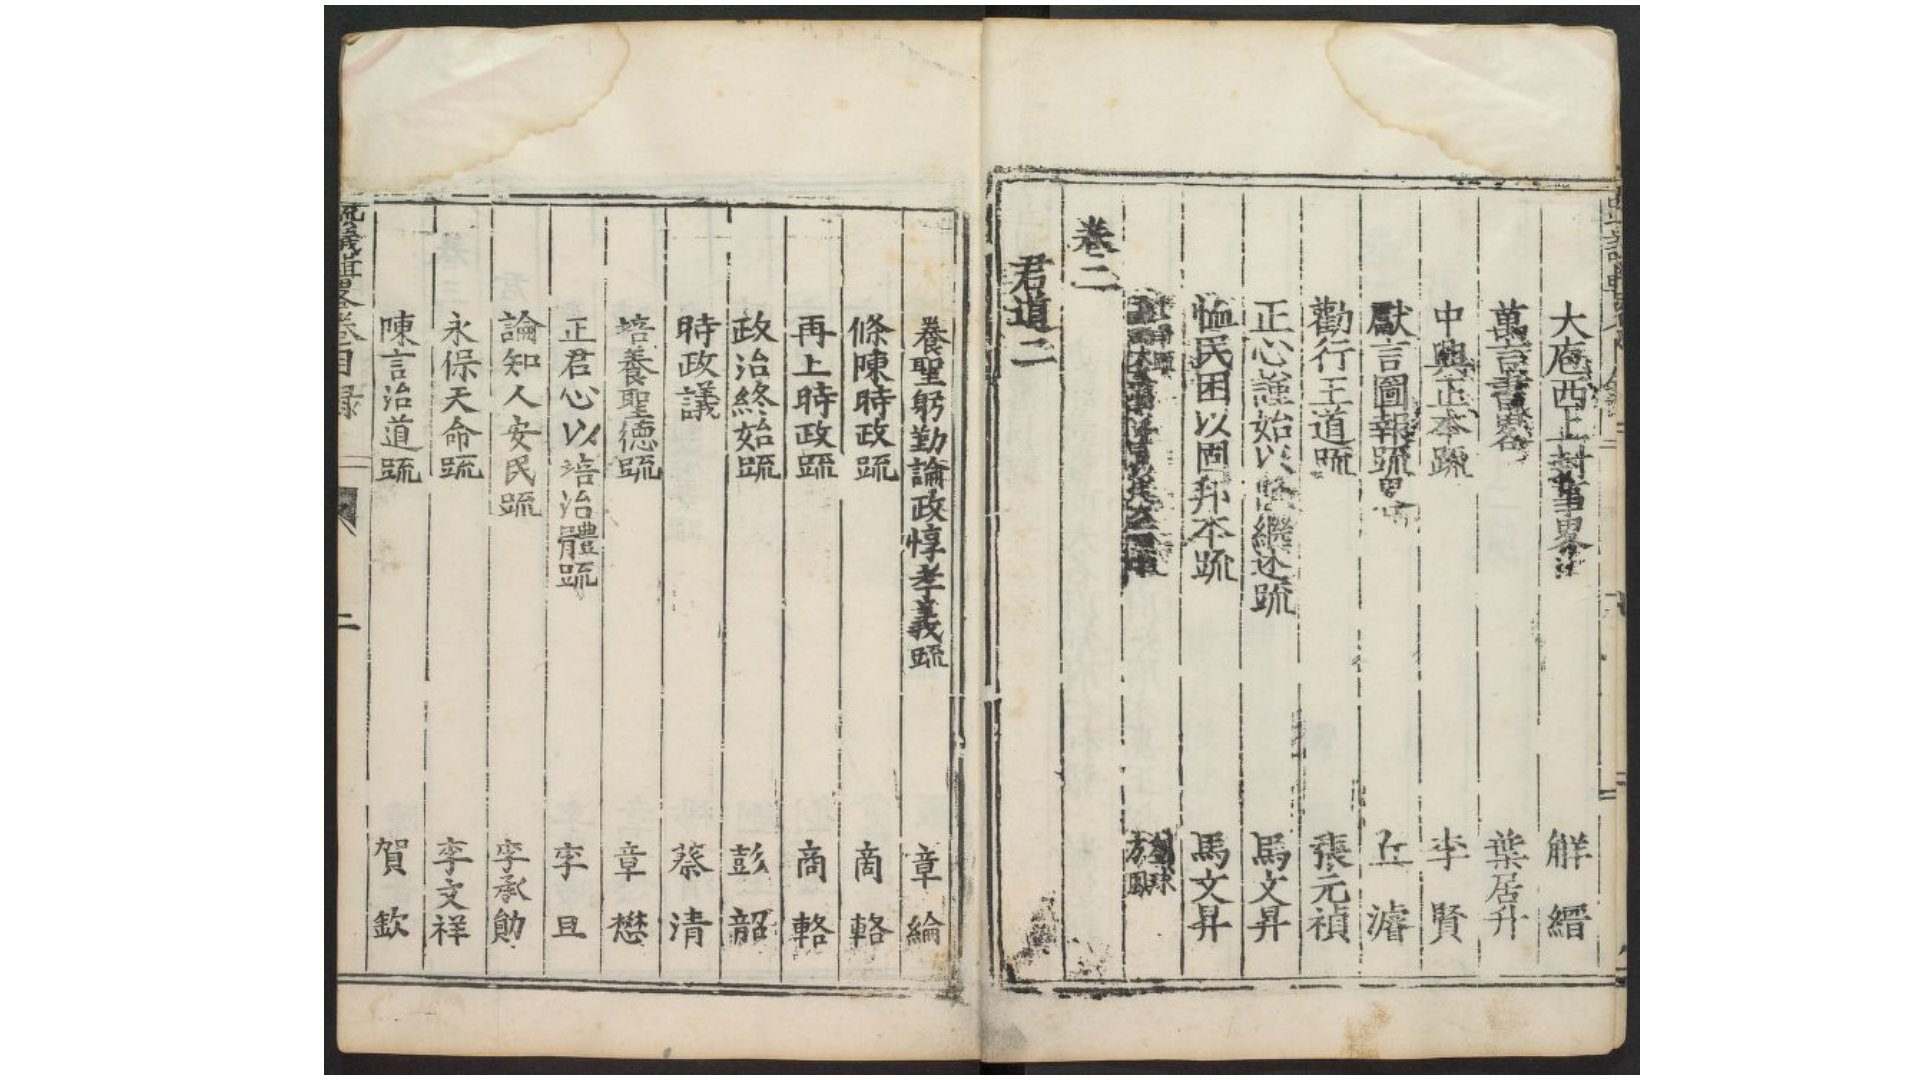 大庖西上封事畧 解縉
萬言書畧 葉居升
中興正本䟽 李賢
獻言圖報䟽 丘濬
勸行王道䟽 張元禎
正心謹始以隆繼述䟽 馬文昇
恤民困以固邦本䟽 馬文昇
劉球
卷二
君道二
養聖躬勤論政惇孝義䟽 章綸
條陳時政䟽 商輅
再上時政䟽 商輅
政治終始䟽 彭韶
時政議 蔡清
培養聖德䟽 章懋
正君心以培治體䟽 李旦
論知人安民䟽 李承勛
永保天命䟽 李文祥
陳言治道䟽 賀欽
卷目錄 二